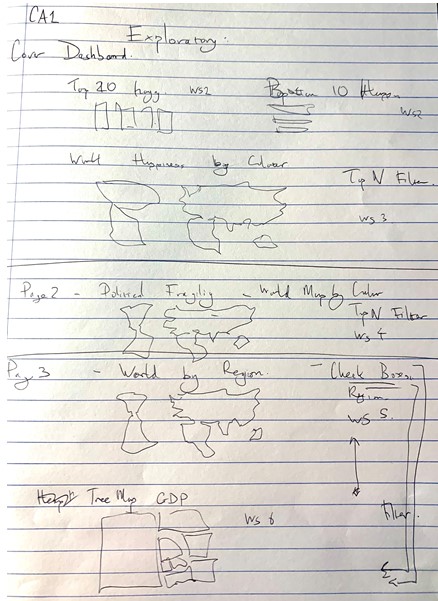 CA1
Exploratory.
Cover Dashboard.
Top 20 WS2
10 Happ WS2
World Happiness by Colour
Top N Filter.
WS 3
Page 2 - Political Fragility - World Map by Color
Top N Filter
WS 4
Page 3 - World by Region. - Check Boxes
Region.
WS 5.
Tree Map GDP
WS 6
Filter.